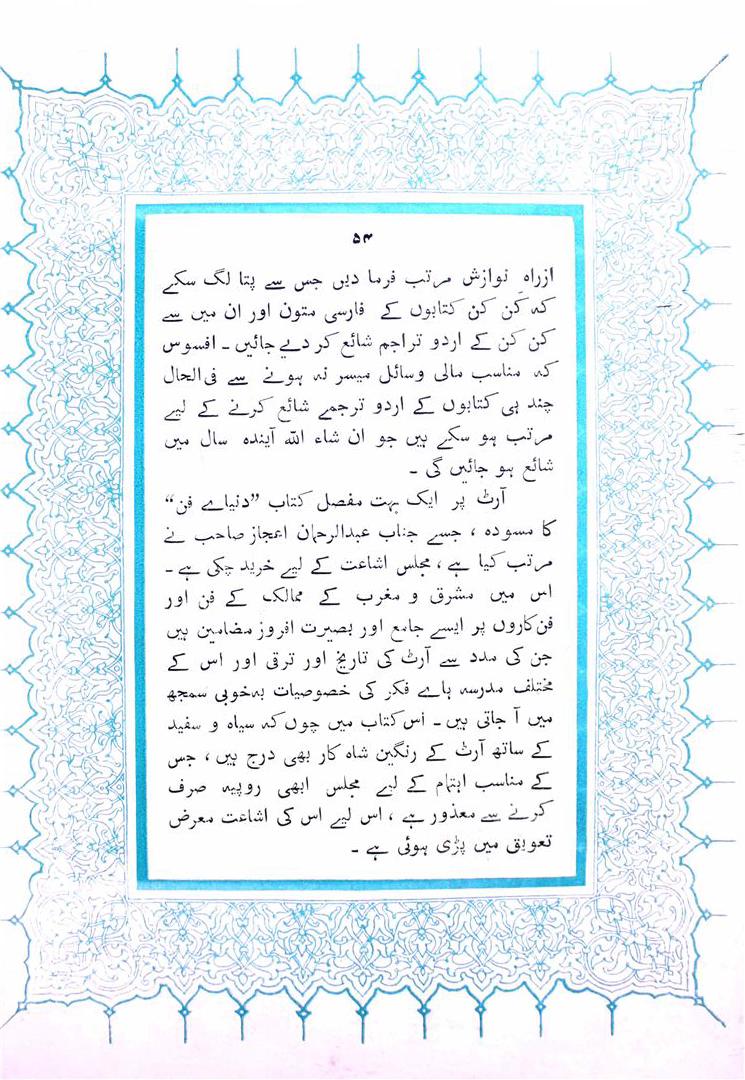 ۵۴
ازراہِ نوازش مرتب فرما دیں جس سے پتا لگ سکے
کہ کن کن کتابوں کے فارسی متون اور ان میں سے
کن کن کے اردو تراجم شائع کر دیے جائیں ۔ افسوس
کہ مناسب مالی وسائل میسر نہ ہونے سے فی الحال
چند ہی کتابوں کے اردو ترجمے شائع کرنے کے لیے
مرتب ہو سکے ہیں جو ان شاء اللہ آیندہ سال میں
شائع ہو جائیں گی ۔
آرٹ پر ایک بہت مفصل کتاب ”دنیاے فن“
کا مسودہ ، جسے جناب عبدالرحمان اعجاز صاحب نے
مرتب کیا ہے ، مجلس اشاعت کے لیے خرید چکی ہے ۔
اس میں مشرق و مغرب کے ممالک کے فن اور
فن کاروں پر ایسے جامع اور بصیرت افروز مضامین ہیں
جن کی مدد سے آرٹ کی تاریخ اور ترقی اور اس کے
مختلف مدرسہ ہاے فکر کی خصوصیات بہ خوبی سمجھ
میں آ جاتی ہیں ۔ اس کتاب میں چوں کہ سیاہ و سفید
کے ساتھ آرٹ کے رنگین شاہ کار بھی درج ہیں ، جس
کے مناسب اہتمام کے لیے مجلس ابھی روپیہ صرف
کرنے سے معذور ہے ، اس لیے اس کی اشاعت معرض
تعویق میں پڑی ہوئی ہے ۔